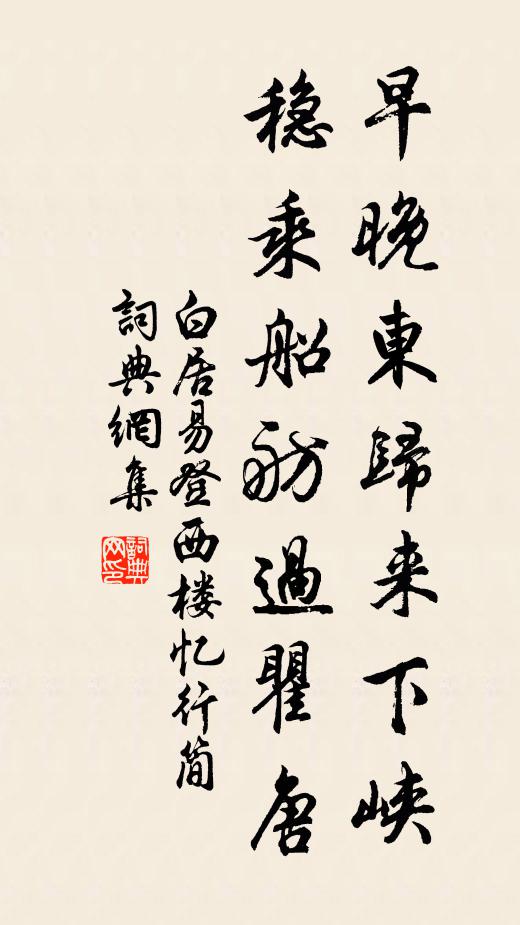 早晚東歸来下峽
稳乘船舫過瞿唐
白居易登西楼忆行简
詞典網集
詞典网印